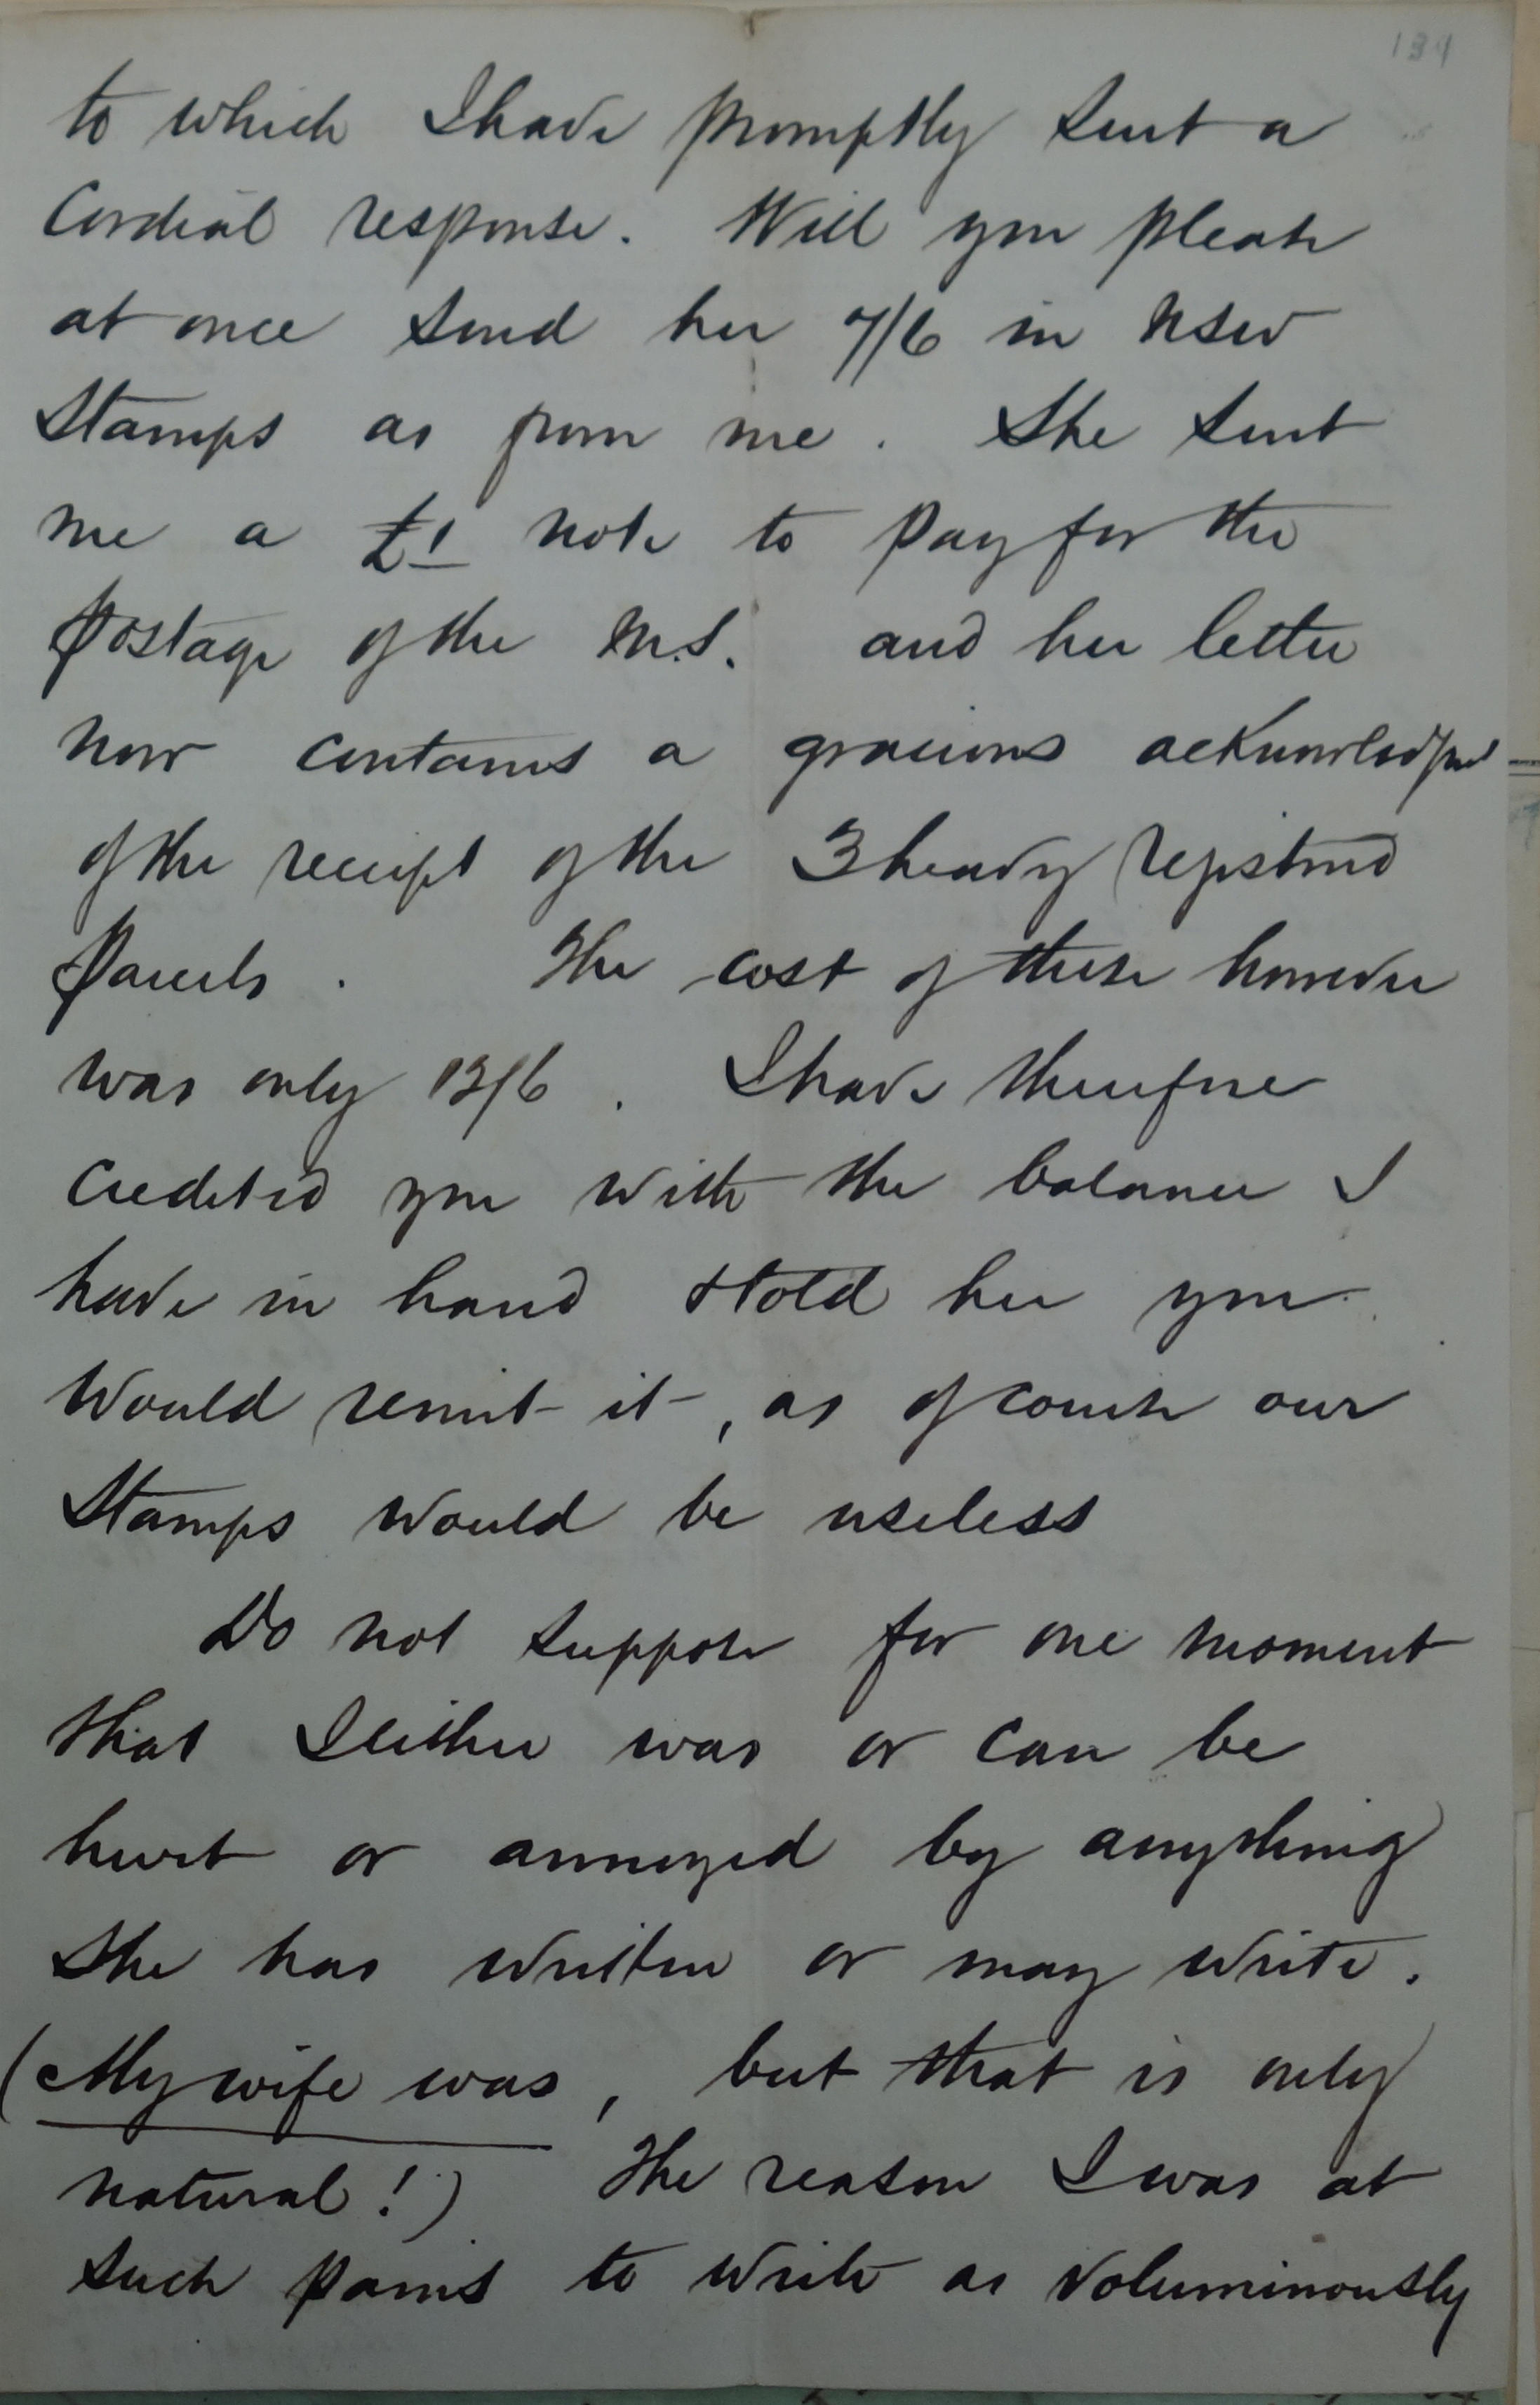 139
to which I have promptly sent a
Cordial response. Will you please
at once send her 7/6 in NSW
Stamps as from me. She sent
me a £1 note to pay for the
postage of the M.S. and her letter
now contains a gracious acknowledgmt
of the receipt of the 3 heavy registered
Parcels. The cost of these however
was only 13/6. I have therefore
Credited you with the balance I
have in hand & told her you
would remit it, as of course our
Stamps would be useless
Do not suppose for one moment
that I either was or can be
hurt or annoyed by anything
She has written or may write.
(My wife was, but that is only
natural!) The reason I was at
such pains to write as voluminously